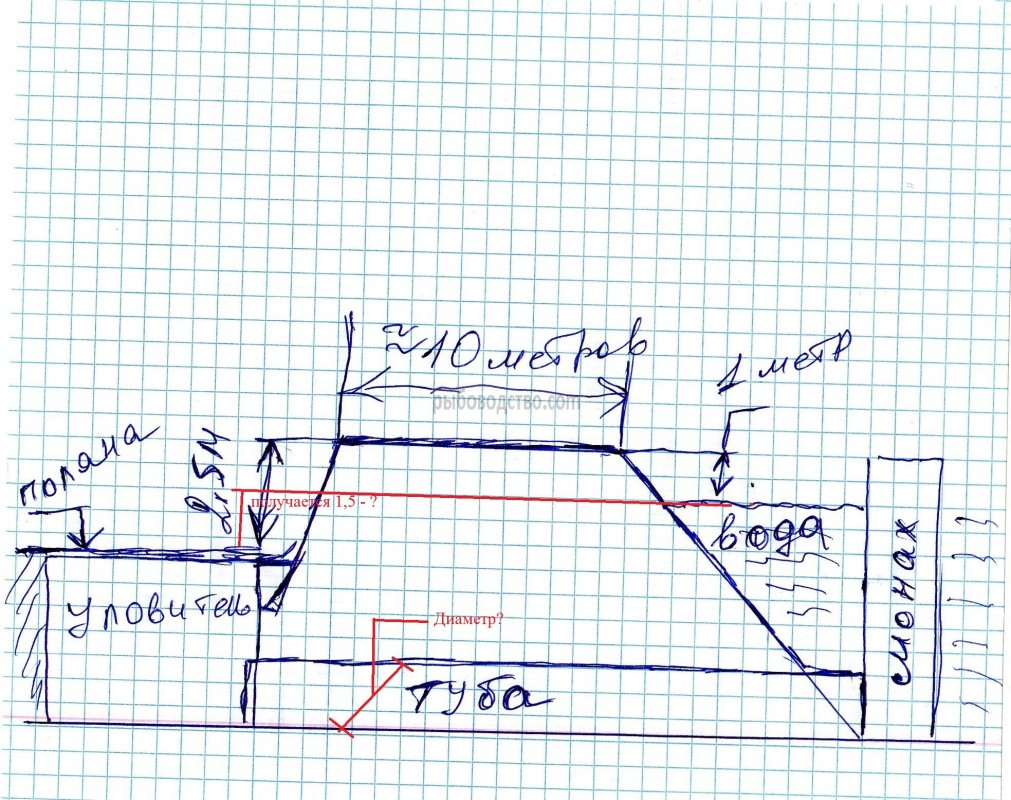 ≈10 метров
1 метр
рыбоводство.com
поляна
2,5м
получается 1,5 - ?
вода
уловитель
Диаметр?
туба
монах